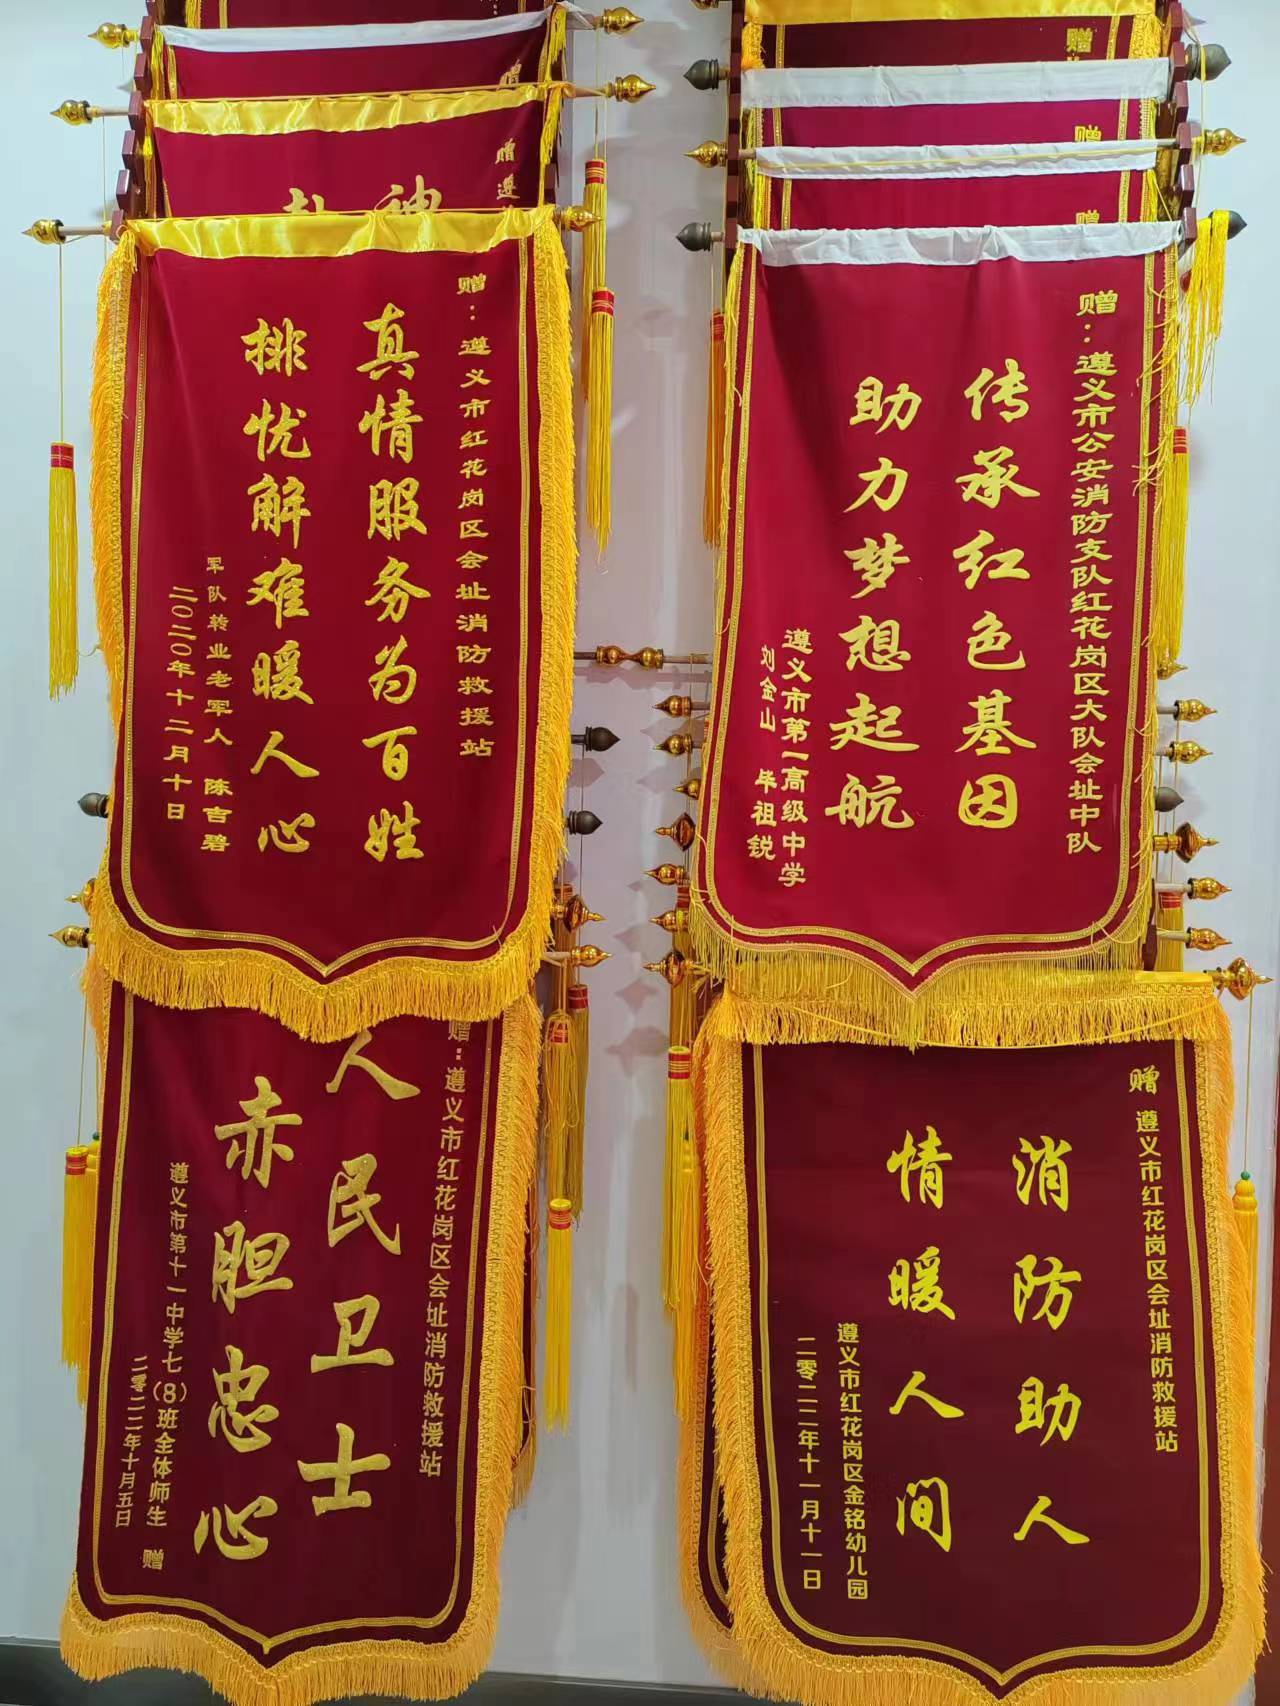 赠
遵
神
赠
赠
赠
赠：遵义市红花岗区会址消防救援站
真情服务为百姓
排忧解难暖人心
军队转业老军人 陈吉碧
二〇二〇年十二月十日
赠：遵义市公安消防支队红花岗区大队会址中队
传承红色基因
助力梦想起航
遵义市第一高级中学
刘金山 毕祖锐
赠：遵义市红花岗区会址消防救援站
人民卫士
赤胆忠心
遵义市第十一中学七（8）班全体师生 赠
二零二二年十月五日
赠 遵义市红花岗区会址消防救援站
消防助人
情暖人间
遵义市红花岗区金铭幼儿园
二零二二年十一月十一日